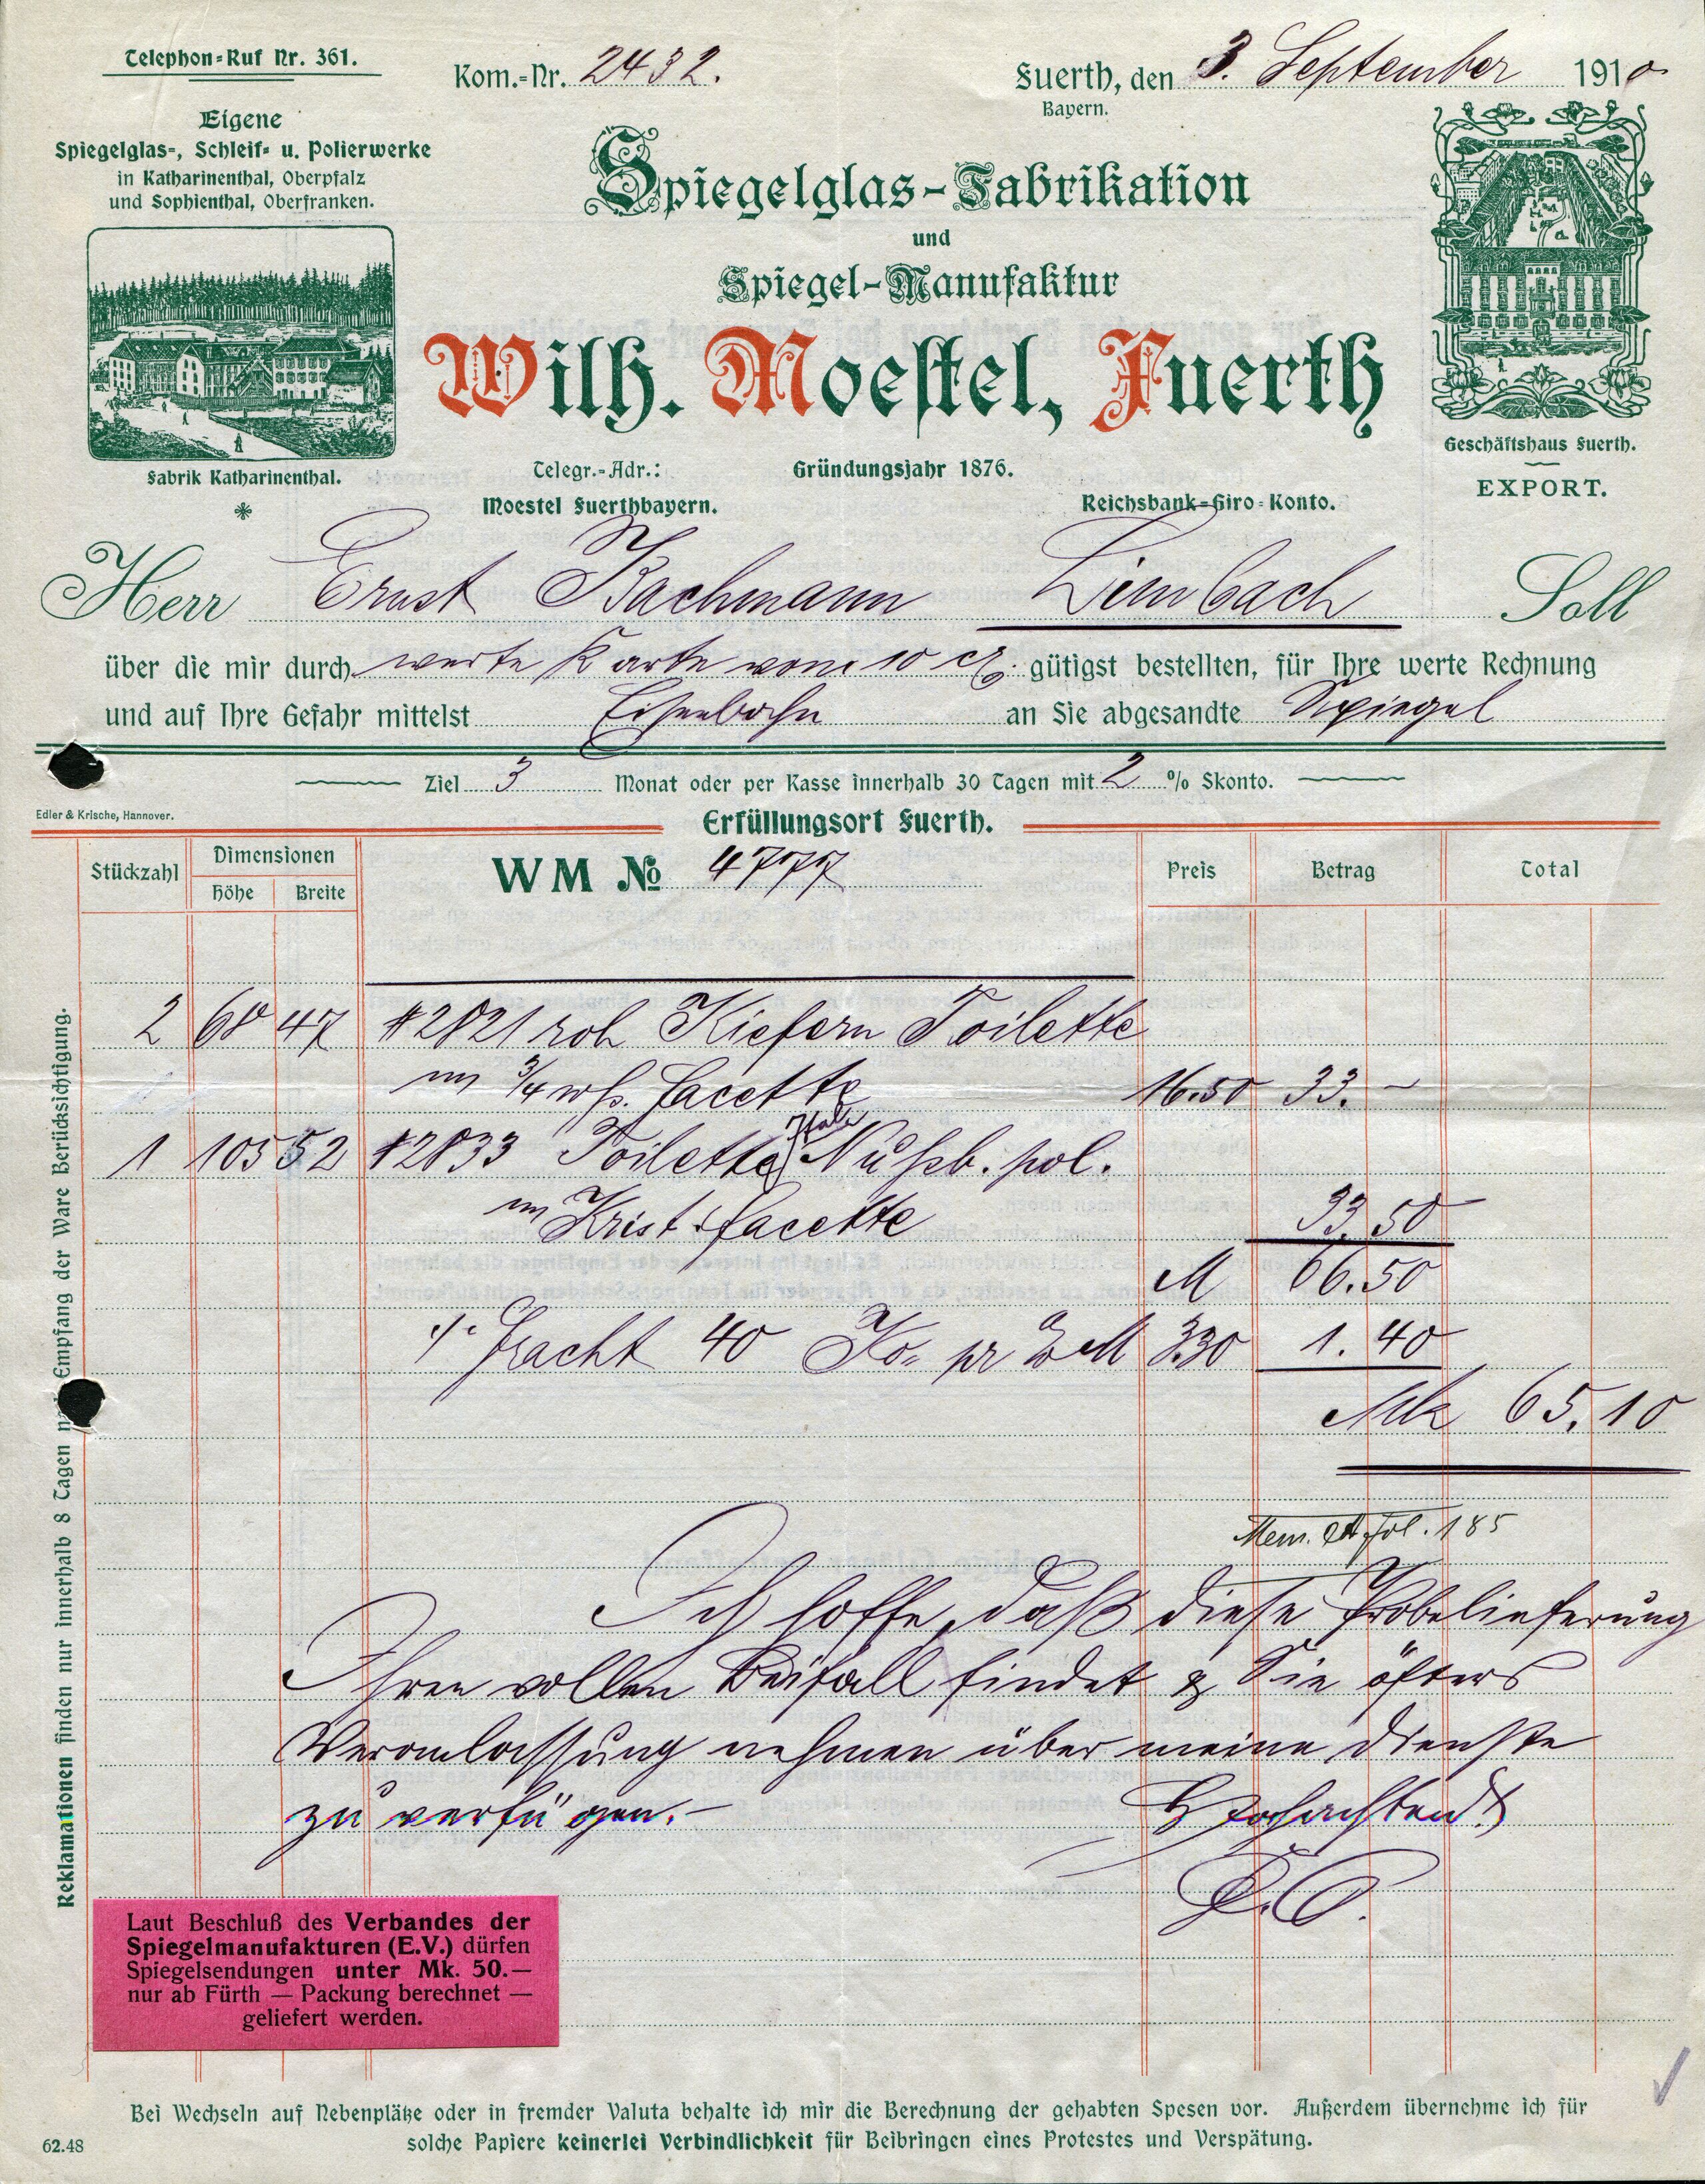 Telephon-Ruf Nr. 361.
Kom.-Nr. 2432.
Fuerth, den 3. September 1910
Bayern.
Eigene
Spiegelglas-, Schleif- u. Polierwerke
in Katharinenthal, Oberpfalz
und Sophienthal, Oberfranken.
Spiegelglas-Fabrikation
und
Spiegel-Manufaktur
Wilh. Moestel, Fuerth
Fabrik Katharinenthal.
Telegr.-Adr.:
Moestel Fuerthbayern.
Gründungsjahr 1876.
Reichsbank-Giro-Konto.
Geschäftshaus Fuerth.
EXPORT.
Herr Ernst Bachmann Limbach Soll
über die mir durch werte Karte vom 10 gütigst bestellten, für Ihre werte Rechnung
und auf Ihre Gefahr mittelst Eisenbahn an Sie abgesandte Spiegel
Ziel 3 Monat oder per Kasse innerhalb 30 Tagen mit 2 % Skonto.
Edler & Krische, Hannover.
Erfüllungsort Fuerth.
Stückzahl Dimensionen Höhe Breite WM No 4777 Preis Betrag Total
2 68 47 #2821 roh Kiefern Toilette
m 3/4 wß. Facette 16.50 33.–
1 105 52 #2833 Toilette Nußb. pol.
m Krist. Facette 33.50
M 66.50
Fracht 40 Ko pr M 3.30 1.40
Mk 65.10
Mem. fol. 185
Ich hoffe, daß diese Probelieferung
Ihren vollen Beifall findet & Sie öfters
Veranlassung nehmen über meine Dienste
zu verfügen.–
Hochachtend
Reklamationen finden nur innerhalb 8 Tagen Empfang der Ware Berücksichtigung.
Laut Beschluß des Verbandes der
Spiegelmanufakturen (E.V.) dürfen
Spiegelsendungen unter Mk. 50.—
nur ab Fürth — Packung berechnet —
geliefert werden.
Bei Wechseln auf Nebenplätze oder in fremder Valuta behalte ich mir die Berechnung der gehabten Spesen vor. Außerdem übernehme ich für
solche Papiere keinerlei Verbindlichkeit für Beibringen eines Protestes und Verspätung.
62.48